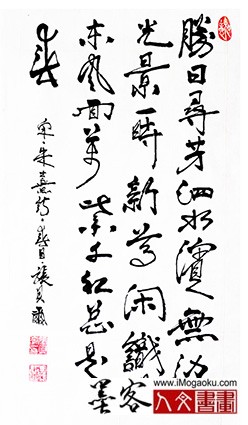 勝日尋芳泗水濱無边
光景一時新等闲識
东风面萬紫千红总是
春
宋朱熹詩·春日·張
www.iMogaoku.com
人文書畫